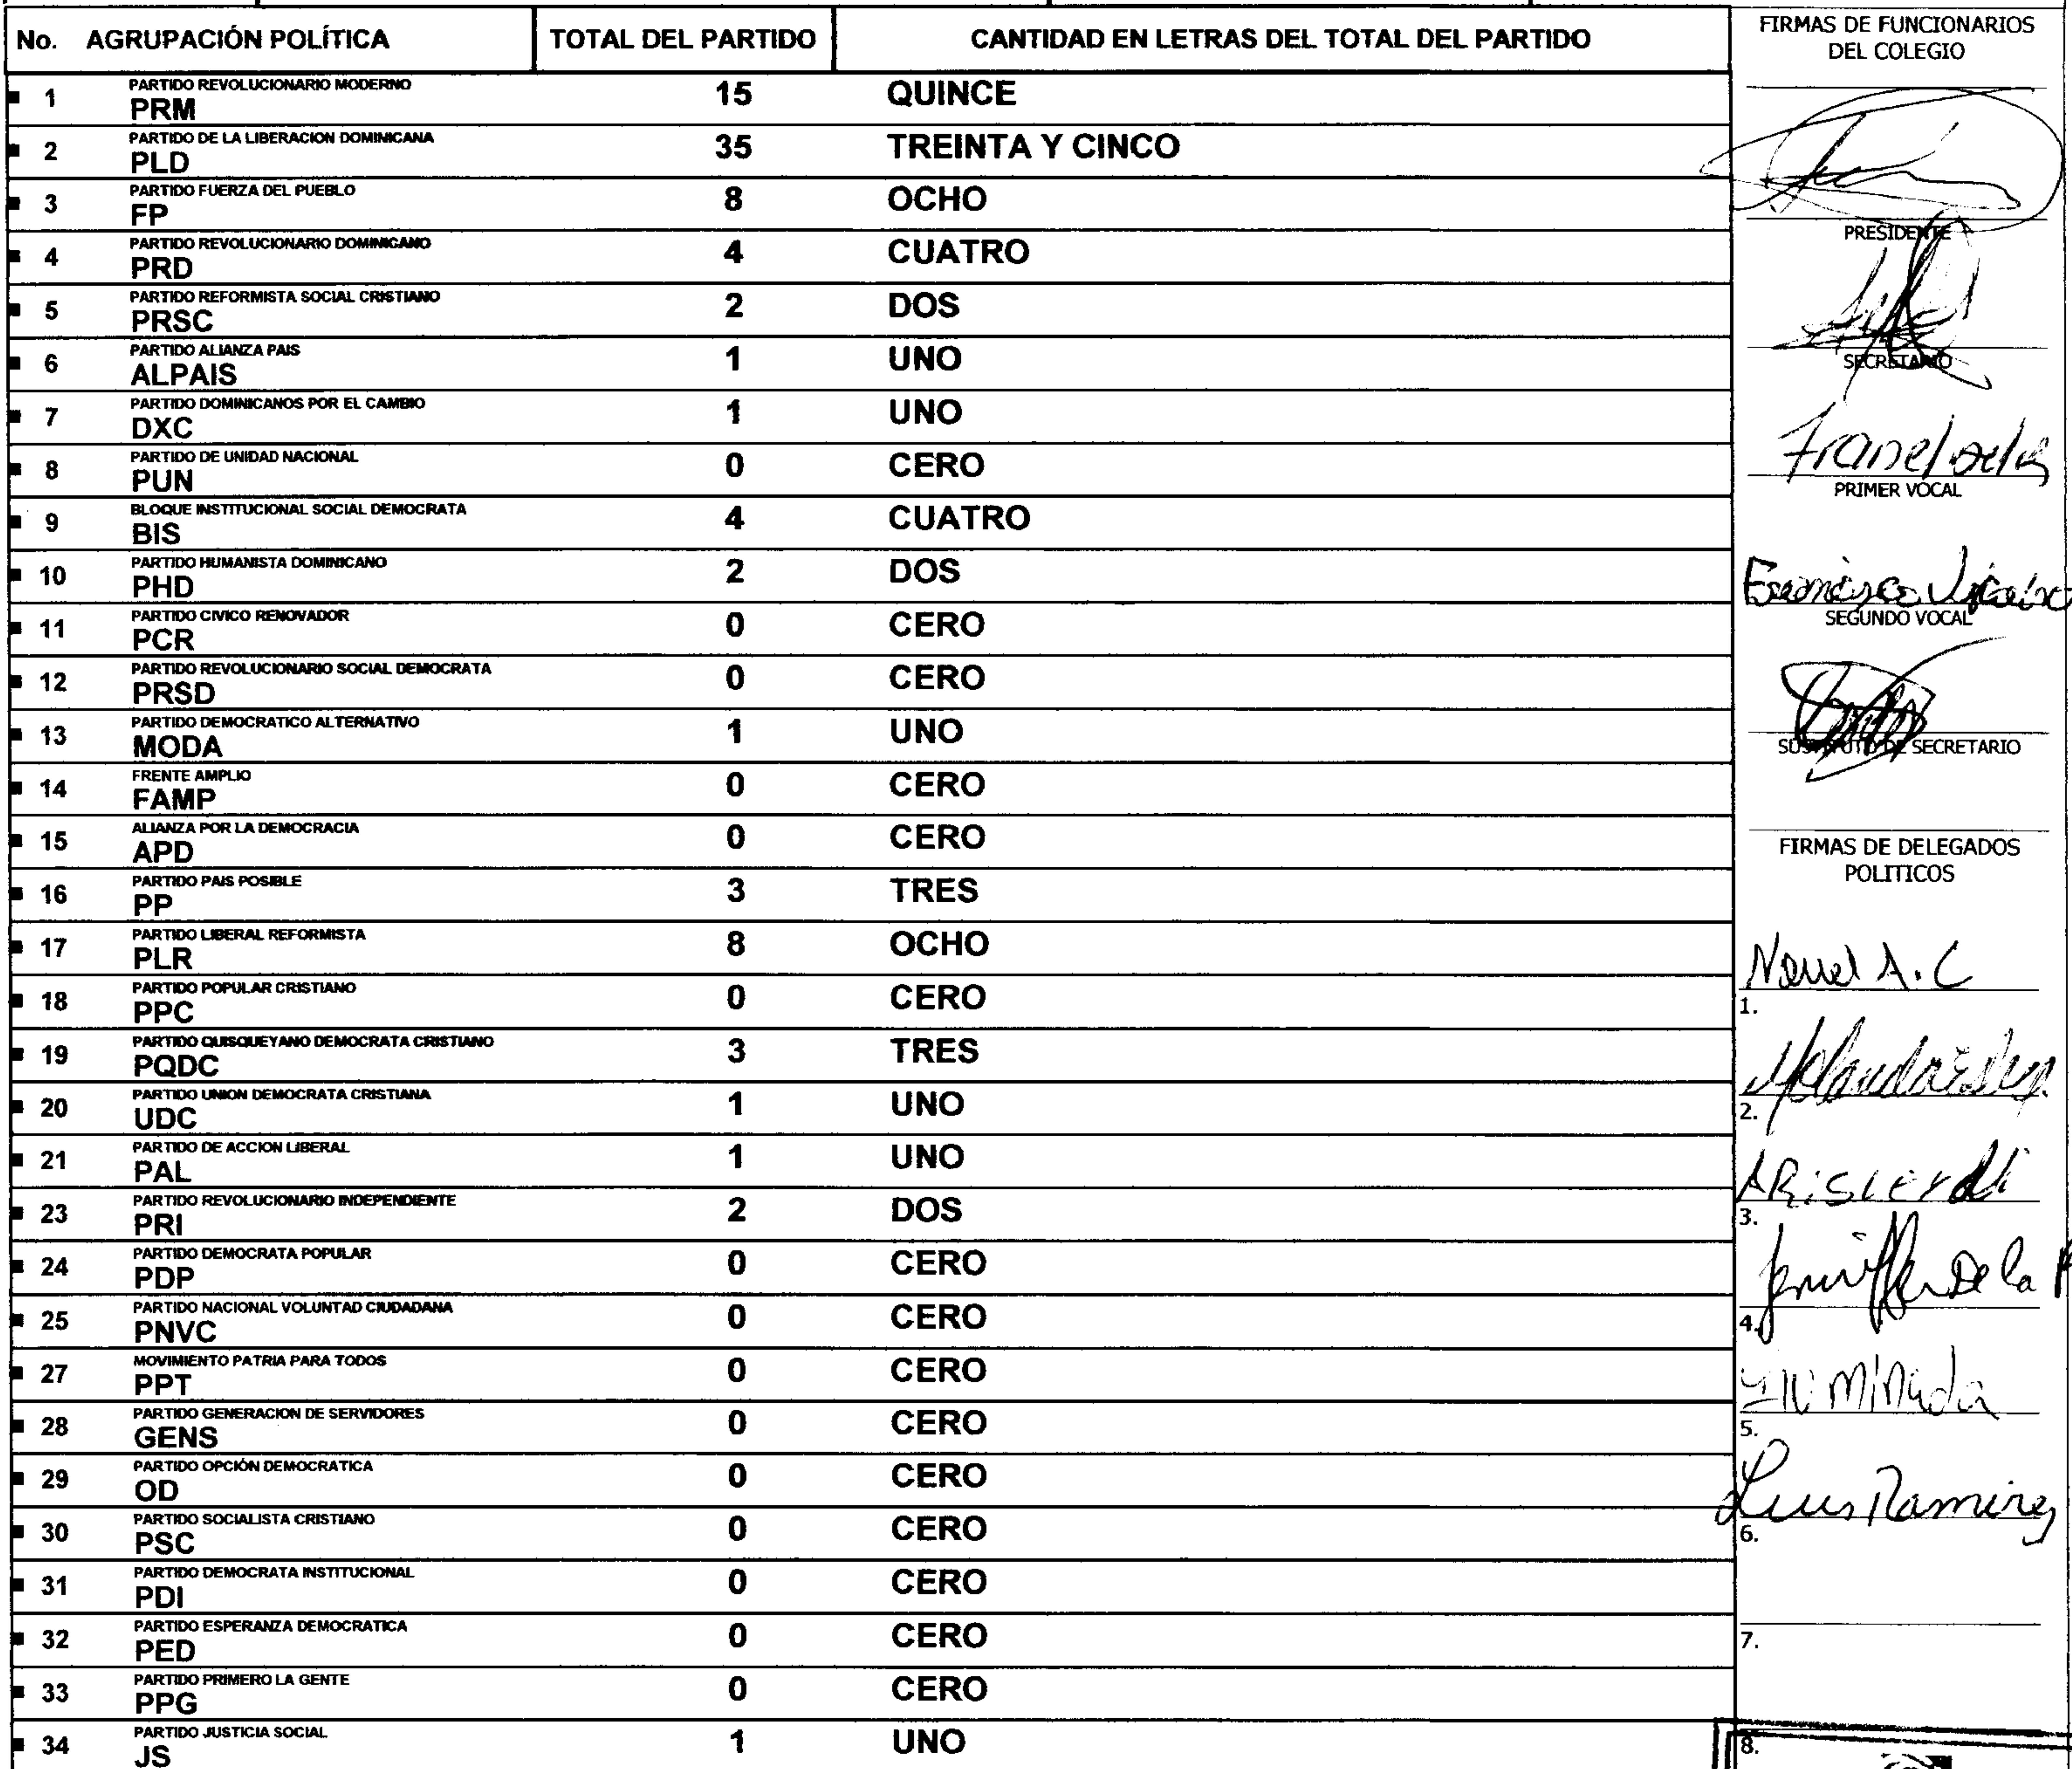 No. AGRUPACIÓN POLÍTICA TOTAL DEL PARTIDO CANTIDAD EN LETRAS DEL TOTAL DEL PARTIDO
1 PARTIDO REVOLUCIONARIO MODERNO
PRM 15 QUINCE
2 PARTIDO DE LA LIBERACION DOMINICANA
PLD 35 TREINTA Y CINCO
3 PARTIDO FUERZA DEL PUEBLO
FP 8 OCHO
4 PARTIDO REVOLUCIONARIO DOMINICANO
PRD 4 CUATRO
5 PARTIDO REFORMISTA SOCIAL CRISTIANO
PRSC 2 DOS
6 PARTIDO ALIANZA PAIS
ALPAIS 1 UNO
7 PARTIDO DOMINICANOS POR EL CAMBIO
DXC 1 UNO
8 PARTIDO DE UNIDAD NACIONAL
PUN 0 CERO
9 BLOQUE INSTITUCIONAL SOCIAL DEMOCRATA
BIS 4 CUATRO
10 PARTIDO HUMANISTA DOMINICANO
PHD 2 DOS
11 PARTIDO CIVICO RENOVADOR
PCR 0 CERO
12 PARTIDO REVOLUCIONARIO SOCIAL DEMOCRATA
PRSD 0 CERO
13 PARTIDO DEMOCRATICO ALTERNATIVO
MODA 1 UNO
14 FRENTE AMPLIO
FAMP 0 CERO
15 ALIANZA POR LA DEMOCRACIA
APD 0 CERO
16 PARTIDO PAIS POSIBLE
PP 3 TRES
17 PARTIDO LIBERAL REFORMISTA
PLR 8 OCHO
18 PARTIDO POPULAR CRISTIANO
PPC 0 CERO
19 PARTIDO QUISQUEYANO DEMOCRATA CRISTIANO
PQDC 3 TRES
20 PARTIDO UNION DEMOCRATA CRISTIANA
UDC 1 UNO
21 PARTIDO DE ACCION LIBERAL
PAL 1 UNO
23 PARTIDO REVOLUCIONARIO INDEPENDIENTE
PRI 2 DOS
24 PARTIDO DEMOCRATA POPULAR
PDP 0 CERO
25 PARTIDO NACIONAL VOLUNTAD CIUDADANA
PNVC 0 CERO
27 MOVIMIENTO PATRIA PARA TODOS
PPT 0 CERO
28 PARTIDO GENERACION DE SERVIDORES
GENS 0 CERO
29 PARTIDO OPCIÓN DEMOCRATICA
OD 0 CERO
30 PARTIDO SOCIALISTA CRISTIANO
PSC 0 CERO
31 PARTIDO DEMOCRATA INSTITUCIONAL
PDI 0 CERO
32 PARTIDO ESPERANZA DEMOCRATICA
PED 0 CERO
33 PARTIDO PRIMERO LA GENTE
PPG 0 CERO
34 PARTIDO JUSTICIA SOCIAL
JS 1 UNO
FIRMAS DE FUNCIONARIOS
DEL COLEGIO
PRESIDENTE
SECRETARIO
PRIMER VOCAL
SEGUNDO VOCAL
SUSTITUTO DE SECRETARIO
FIRMAS DE DELEGADOS
POLITICOS
A. C
1.
2.
3.
Jenniffer De la
4.
5.
Luis Ramirez
6.
7.
8.